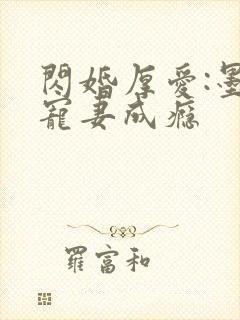 閃婚厚愛:墨
寵妻成癮
羅富和